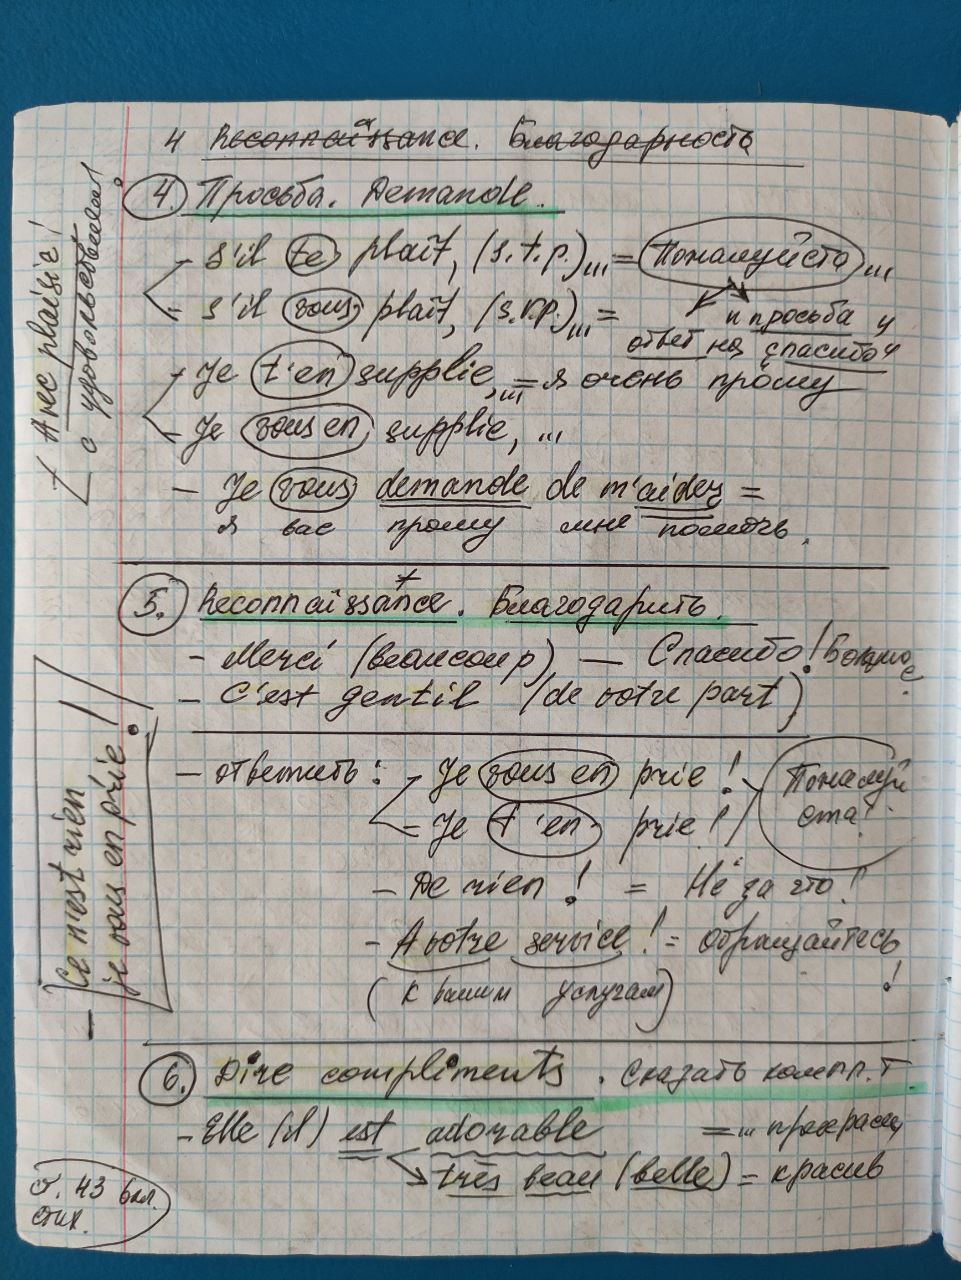 4 Reconnaissance. Благодарность
4. Просьба. Demande.
- s'il te plaît, (s.t.p.)... = Пожалуйста...
- s'il vous plaît, (s.v.p.)... =
и просьба и
ответ на спасибо
- Je t'en supplie, ... = я очень прошу
- Je vous en supplie, ...
- Je vous demande de m'aider =
я вас прошу мне помочь.
Avec plaisir!
с удовольствием!
5. Reconnaissance. Благодарить.
- Merci (beaucoup) — Спасибо! Большое
- C'est gentil (de votre part)
- ответить: - Je vous en prie!
- Je t'en prie!
Пожалуй
ста!
- De rien! = Не за что!
- A votre service! = обращайтесь!
(к вашим услугам)
- Ce n'est rien
je vous en prie!
6. Dire compliments. Сказать компл.т
- Elle (il) est adorable = ... прекрасен
très beau (belle) = красив
с. 43
стих.